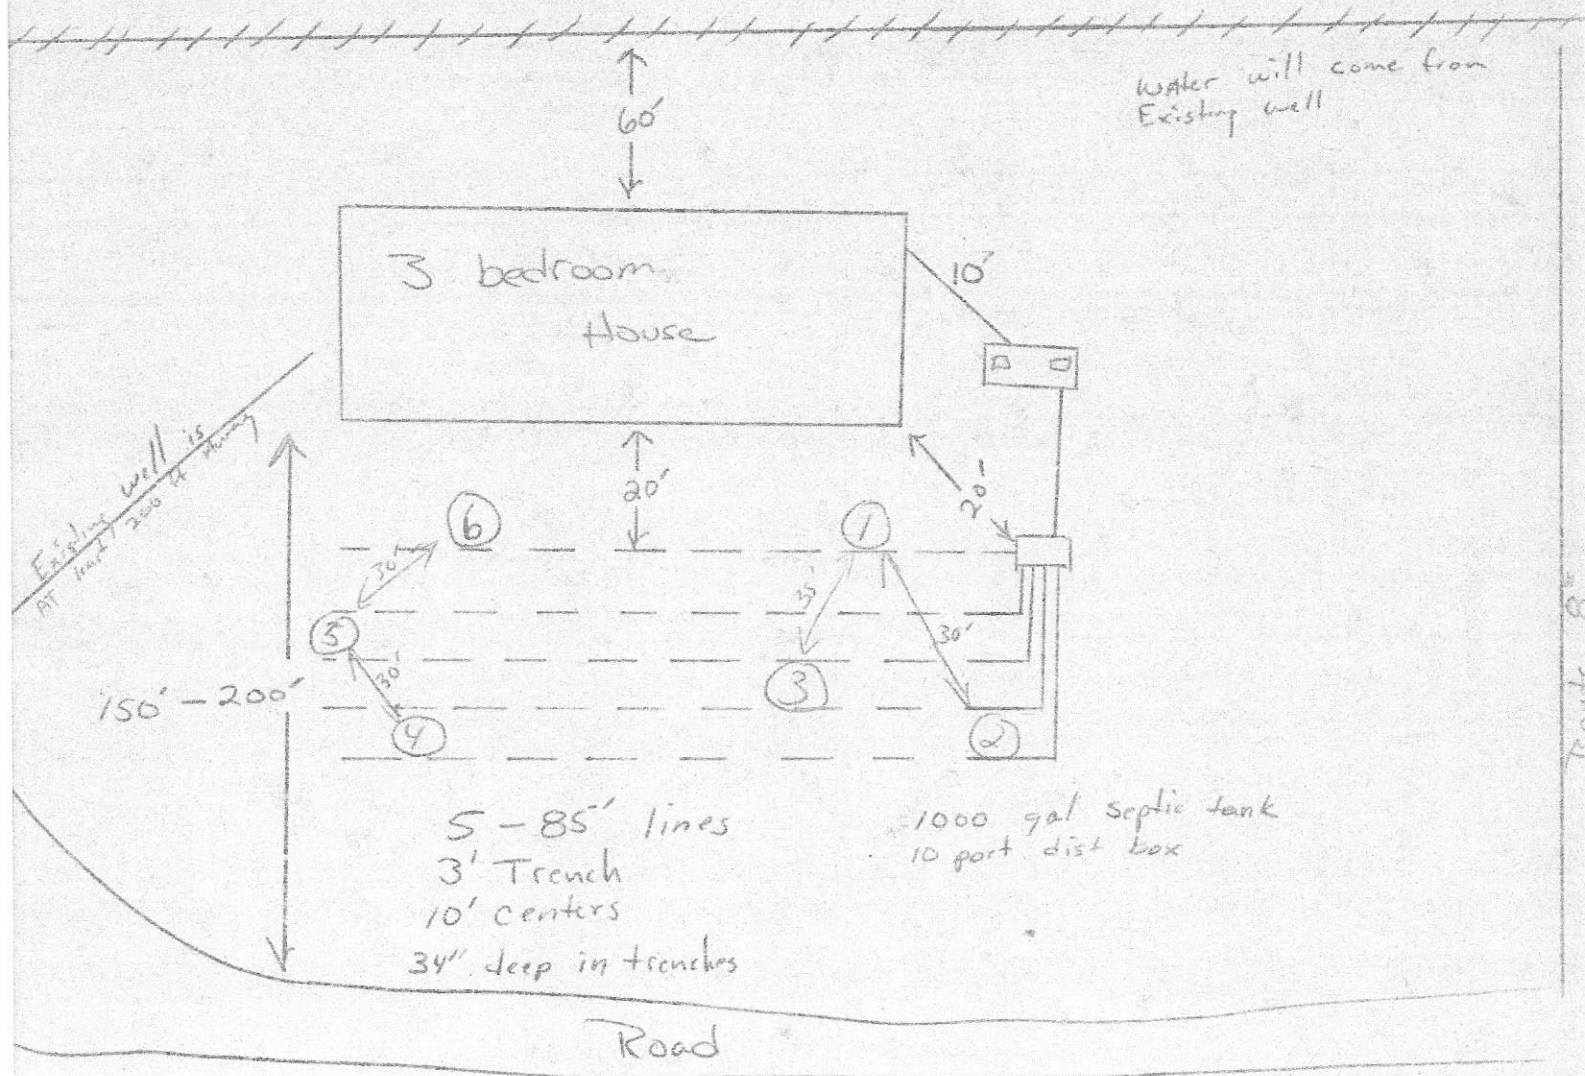 Water will come from
Existing well
60'
3 bedroom
House
10'
Existing well is
AT least 200 ft away
20'
20'
6
1
30'
35'
30'
5
30'
3
150' - 200'
4
2
5 - 85' lines
3' Trench
10' Centers
34" deep in trenches
1000 gal septic tank
10 port dist box
Road